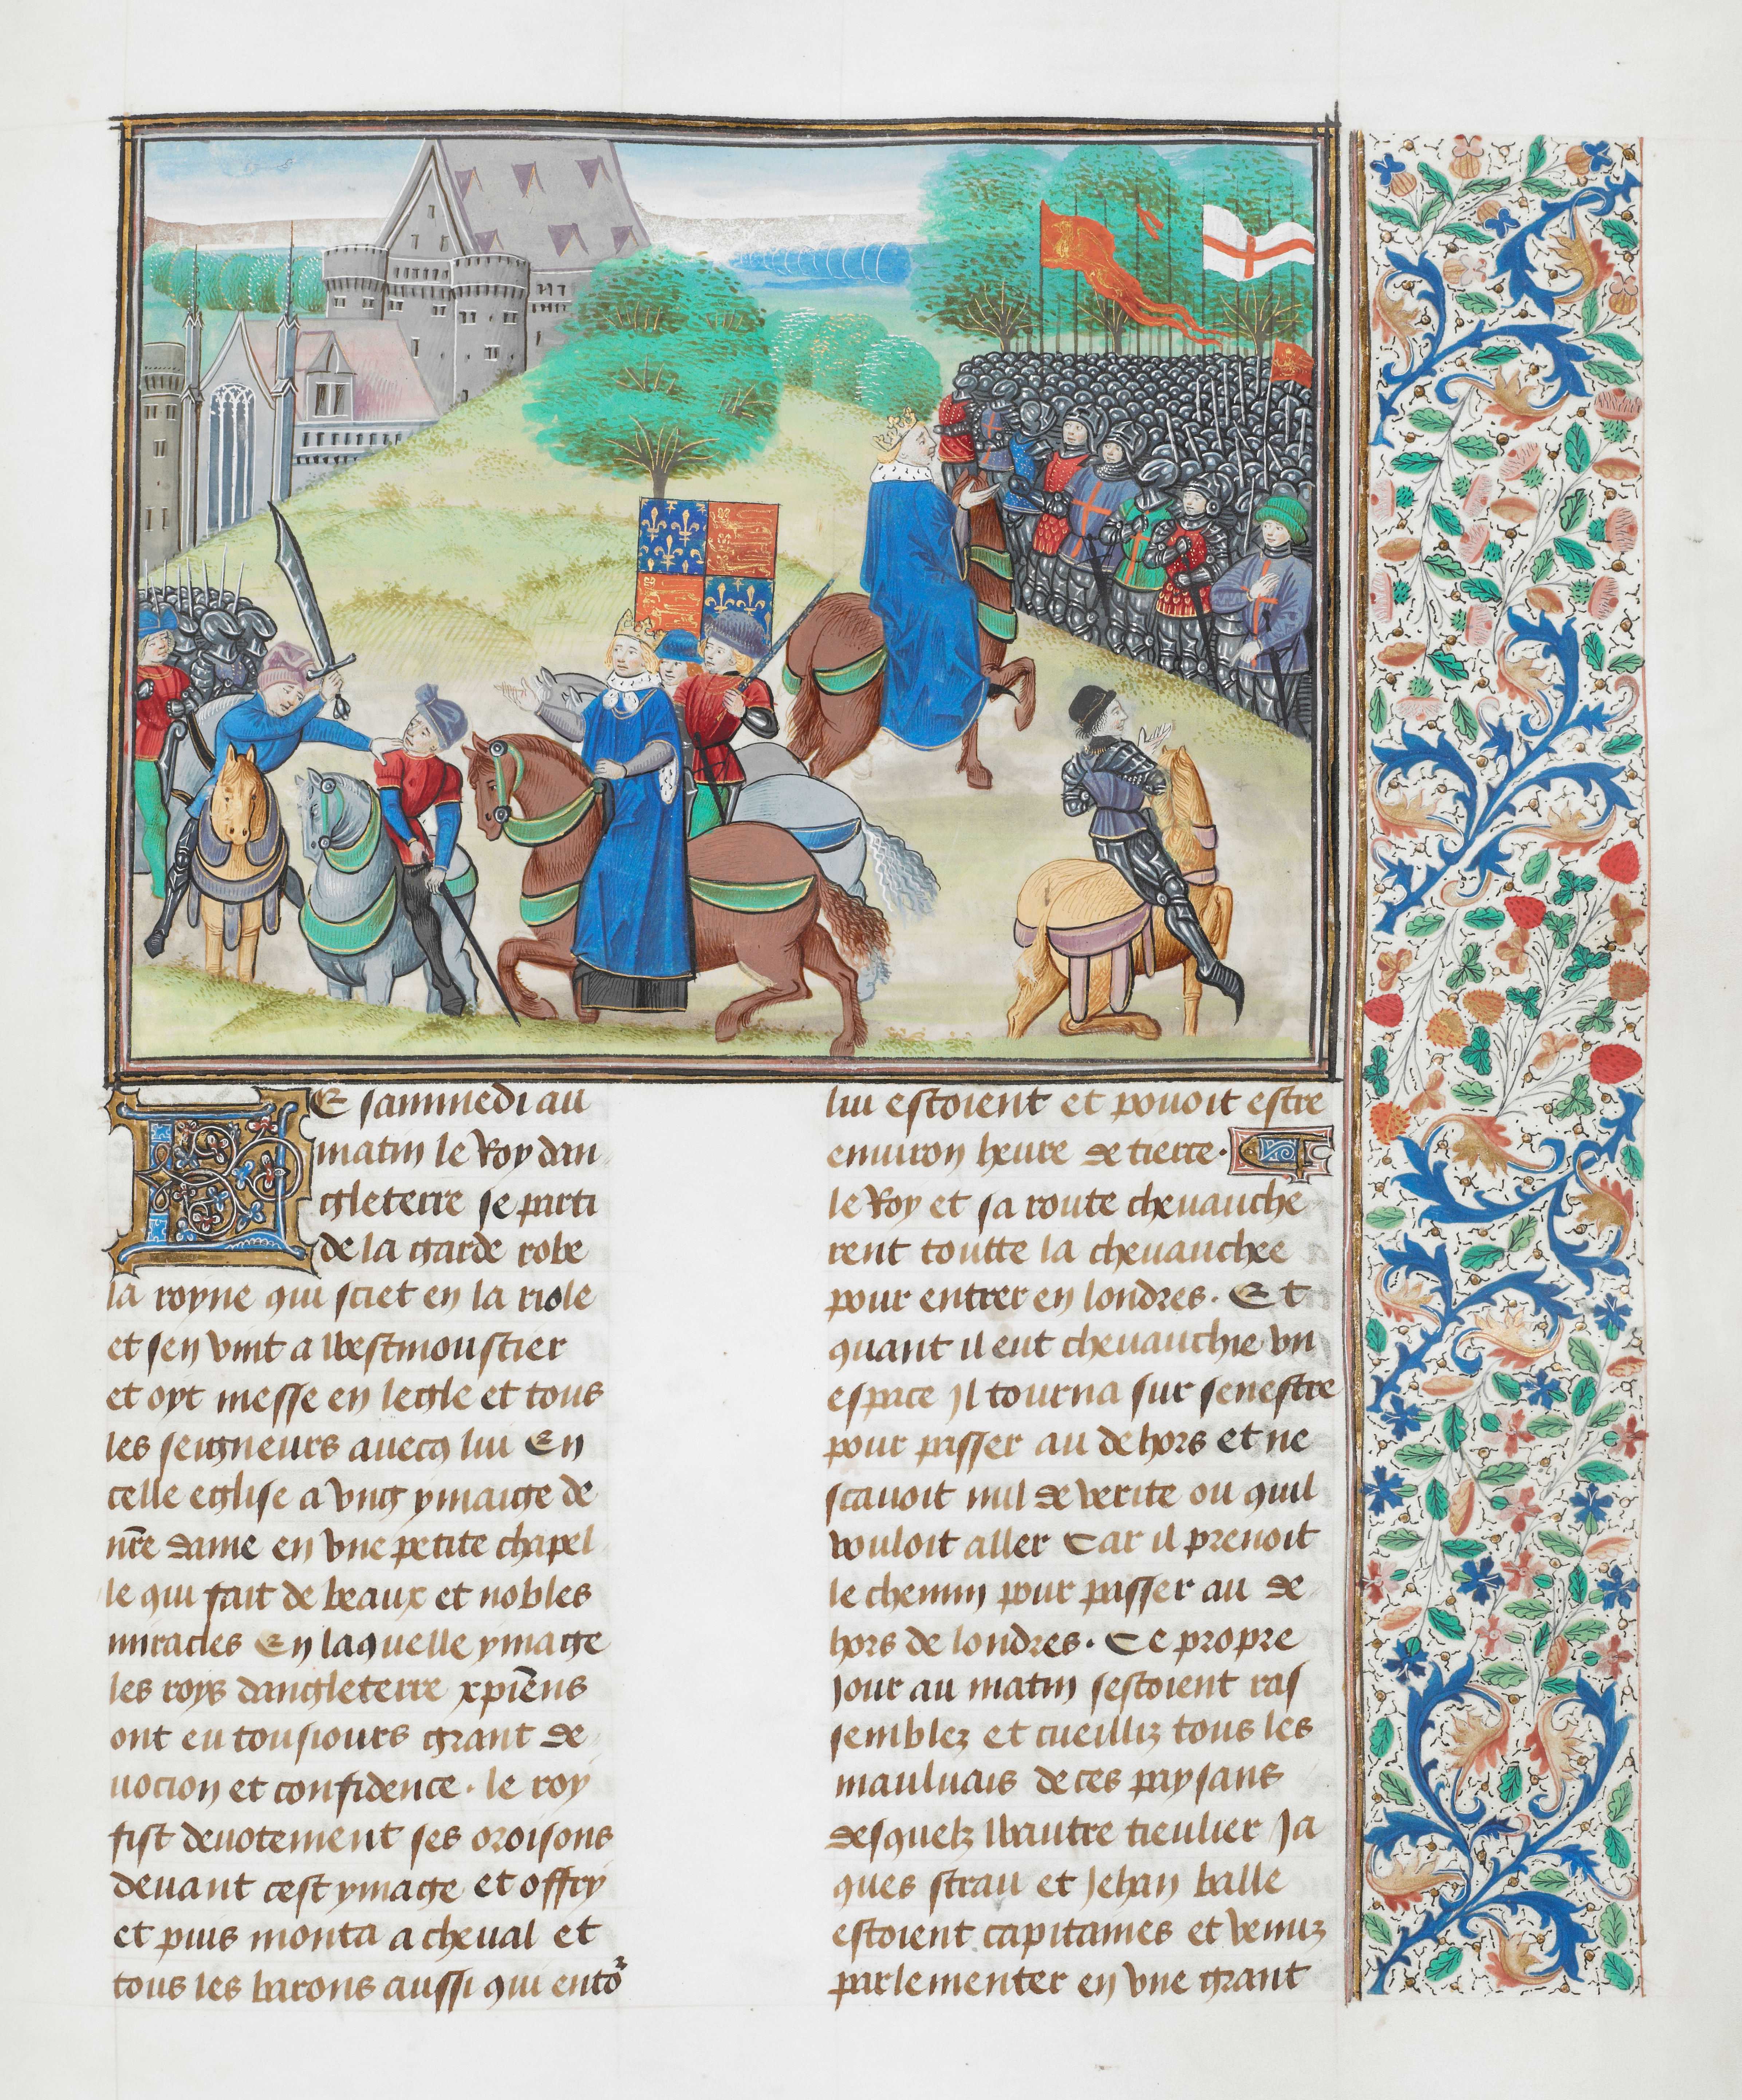 LE sammedi au
matin le Roy dan
gleterre se parti
de la garde robe
la royne qui sciet en la riole
et sen vint a westmoustier
et oyt messe en legle et tous
les seigneurs auecq lui En
celle eglise a vng ymaige de
nr̄e dame en vne petite chapel
le qui fait de beaux et nobles
miracles En laquelle ymage
les roys dangleterre xpīens
ont eu tousiours grant de
uocion et confidence. le roy
fist deuotement ses oroisons
deuant cest ymage et offry
et puis monta a cheual et
tous les barons aussi qui entoˀ
lui estoient et pouoit estre
enuiron heure de tierce. 
le Roy et sa route cheuauche
rent toutte la cheuauchee
pour entrer en londres. Et
quant il eut cheuauchie vn
espace Il tourna sur senestre
pour passer au dehors et ne
scauoit nul de verite ou quil
vouloit aller Car il prenoit
le chemin pour passer au de
hors de londres. Ce propre
Jour au matin sestoient ras
semblez et cueilliz tous les
mauluais de ces paysans
desquelz wautre tieulier Ja
ques strau et Jehan balle
estoient capitaines et venuz
parlementer en vne grant